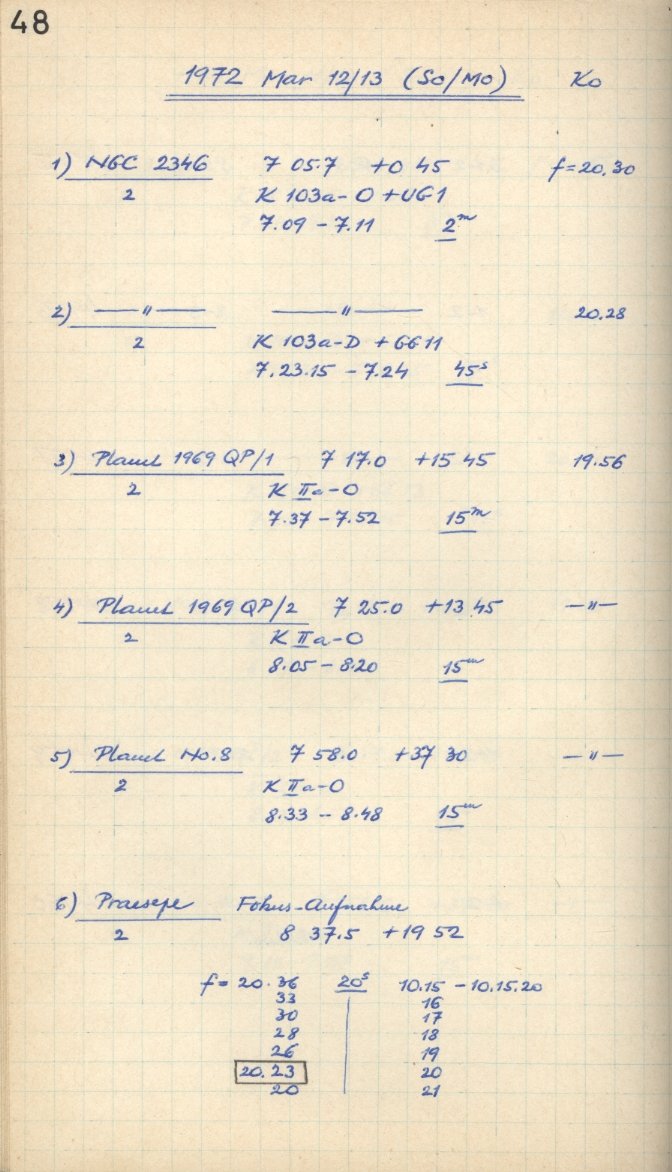 48
1972 Mar 12/13 (So/Mo) Ko
1) NGC 2346 7 05.7 +0 45 f=20.30
2 K 103a-O +UG1
7.09 - 7.11 2m
2) —〃— —〃— 20.28
2 K 103a-D +GG11
7.23.15 - 7.24 45s
3) Planet 1969 QP/1 7 17.0 +15 45 19.56
2 K IIa-O
7.37 - 7.52 15m
4) Planet 1969 QP/2 7 25.0 +13 45 —〃—
2 K IIa-O
8.05 - 8.20 15m
5) Planet No.8 7 58.0 +37 30 —〃—
2 K IIa-O
8.33 - 8.48 15m
6) Praesepe Fokus-Aufnahme
2 8 37.5 +19 52
f= 20.36 20s 10.15 - 10.15.20
33 16
30 17
28 18
26 19
20.23 20
20 21